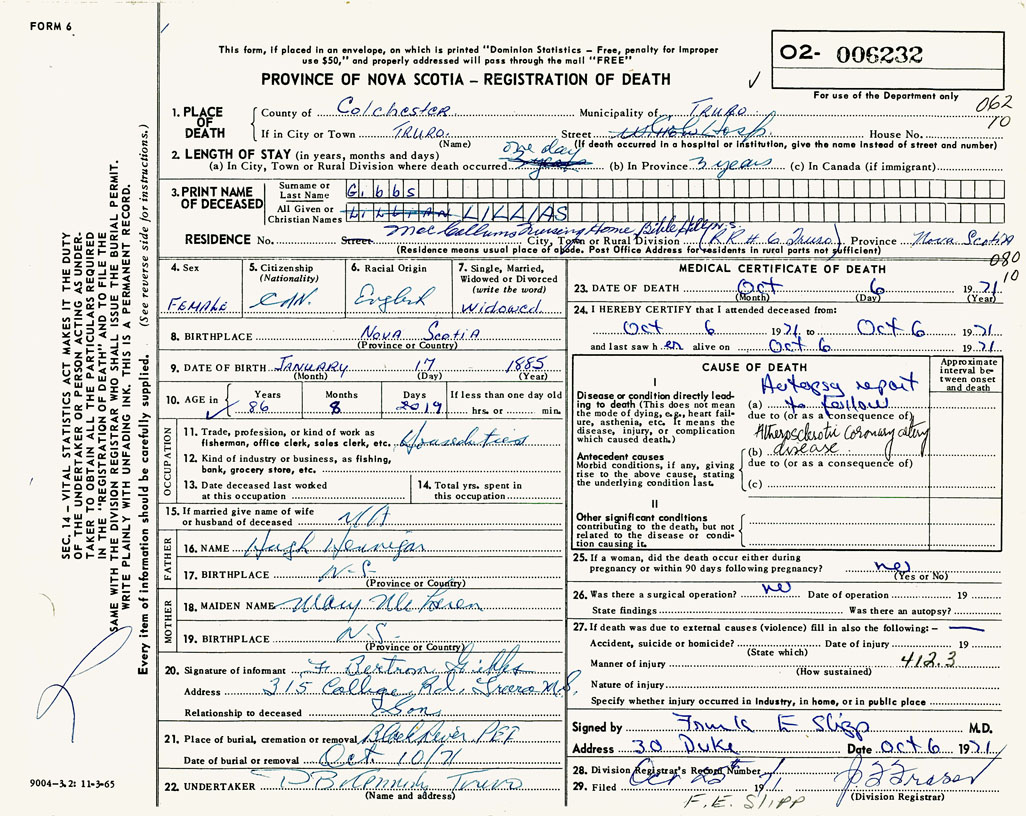 FORM 6
This form, if placed in an envelope, on which is printed "Dominion Statistics – Free, penalty for improper
use $50," and properly addressed will pass through the mail "FREE"
PROVINCE OF NOVA SCOTIA – REGISTRATION OF DEATH
02- 006232
For use of the Department only
062
10
1. PLACE OF DEATH
County of Colchester Municipality of TRURO
If in City or Town TRURO. Street House No.
(Name) (If death occurred in a hospital or institution, give the name instead of street and number)
2. LENGTH OF STAY (in years, months and days)
one day
(a) In City, Town or Rural Division where death occurred (b) In Province 3 years (c) In Canada (if immigrant)
3. PRINT NAME OF DECEASED
Surname or Last Name GIBBS
All Given or Christian Names LILLIAN LILLIAS
MacCallums Nursing Home, Bible Hill, N.S.
RESIDENCE No. Street City, Town or Rural Division (R R # 6 Truro) Province Nova Scotia
(Residence means usual place of abode. Post Office Address for residents in rural parts not sufficient)
080
10
4. Sex
FEMALE
5. Citizenship
(Nationality)
CDN.
6. Racial Origin
English
7. Single, Married,
Widowed or Divorced
(write the word)
Widowed.
8. BIRTHPLACE NOVA SCOTIA
(Province or Country)
9. DATE OF BIRTH JANUARY 17 1885
(Month) (Day) (Year)
10. AGE in Years Months Days If less than one day old
86 8 2019 hrs. or min.
OCCUPATION
11. Trade, profession, or kind of work as
fisherman, office clerk, sales clerk, etc. Household
12. Kind of industry or business, as fishing,
bank, grocery store, etc.
13. Date deceased last worked
at this occupation
14. Total yrs. spent in
this occupation
15. If married give name of wife
or husband of deceased N/A
FATHER
16. NAME Hugh Hennigar
17. BIRTHPLACE N-S-
(Province or Country)
MOTHER
18. MAIDEN NAME Mary
19. BIRTHPLACE N.S.
(Province or Country)
20. Signature of informant F. Bertron Gibbs
Address 315 College Rd. Truro N.S.
Relationship to deceased Son
21. Place of burial, cremation or removal Black River PEI
Date of burial or removal Oct. 10/71
22. UNDERTAKER Truro
(Name and address)
MEDICAL CERTIFICATE OF DEATH
23. DATE OF DEATH Oct 6 1971
(Month) (Day) (Year)
24. I HEREBY CERTIFY that I attended deceased from:
Oct 6 1971 to Oct 6 1971
and last saw her alive on Oct 6 1971
CAUSE OF DEATH
Approximate interval between onset and death
I
Disease or condition directly leading to death (This does not mean the mode of dying, e.g., heart failure, asthenia, etc. It means the disease, injury, or complication which caused death.)
Autopsy report
(a) to follow
due to (or as a consequence of)
Atherosclerotic Coronary artery
(b) disease
due to (or as a consequence of)
(c)
Antecedent causes
Morbid conditions, if any, giving
rise to the above cause, stating
the underlying condition last.
II
Other significant conditions
contributing to the death, but not
related to the disease or condi-
tion causing it.
25. If a woman, did the death occur either during
pregnancy or within 90 days following pregnancy? no
(Yes or No)
26. Was there a surgical operation? no Date of operation 19
State findings Was there an autopsy?
27. If death was due to external causes (violence) fill in also the following: –
Accident, suicide or homicide? Date of injury 19
(State which)
Manner of injury 412.3
(How sustained)
Nature of injury
Specify whether injury occurred in Industry, in home, or in public place
Signed by Frank E Slipp M.D.
Address 30 Duke Date Oct 6 1971
28. Division Registrar's Record Number
29. Filed Oct 25th 1971
(Division Registrar)
F.E. SLIPP
SEC. 14 – VITAL STATISTICS ACT MAKES IT THE DUTY
OF THE UNDERTAKER OR PERSON ACTING AS UNDER-
TAKER TO OBTAIN ALL THE PARTICULARS REQUIRED
IN THE "REGISTRATION OF DEATH" AND TO FILE THE
SAME WITH THE DIVISION REGISTRAR WHO SHALL ISSUE THE BURIAL PERMIT.
WRITE PLAINLY WITH UNFADING INK. THIS IS A PERMANENT RECORD.
Every item of information should be carefully supplied. (See reverse side for instructions.)
9004-3.2: 11-3-65